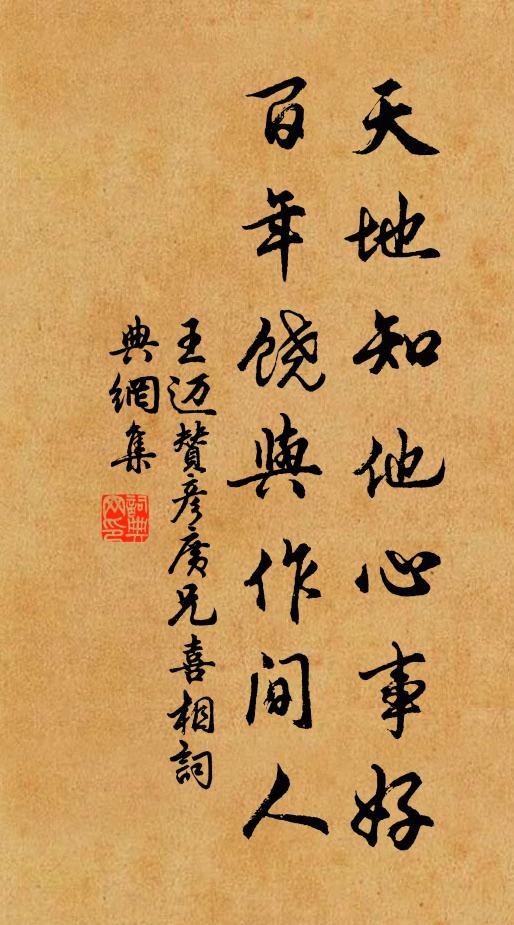 天地知他心事好
百年饶與作间人
王迈贊彦廣兄喜相詞
典網集
詞典網印